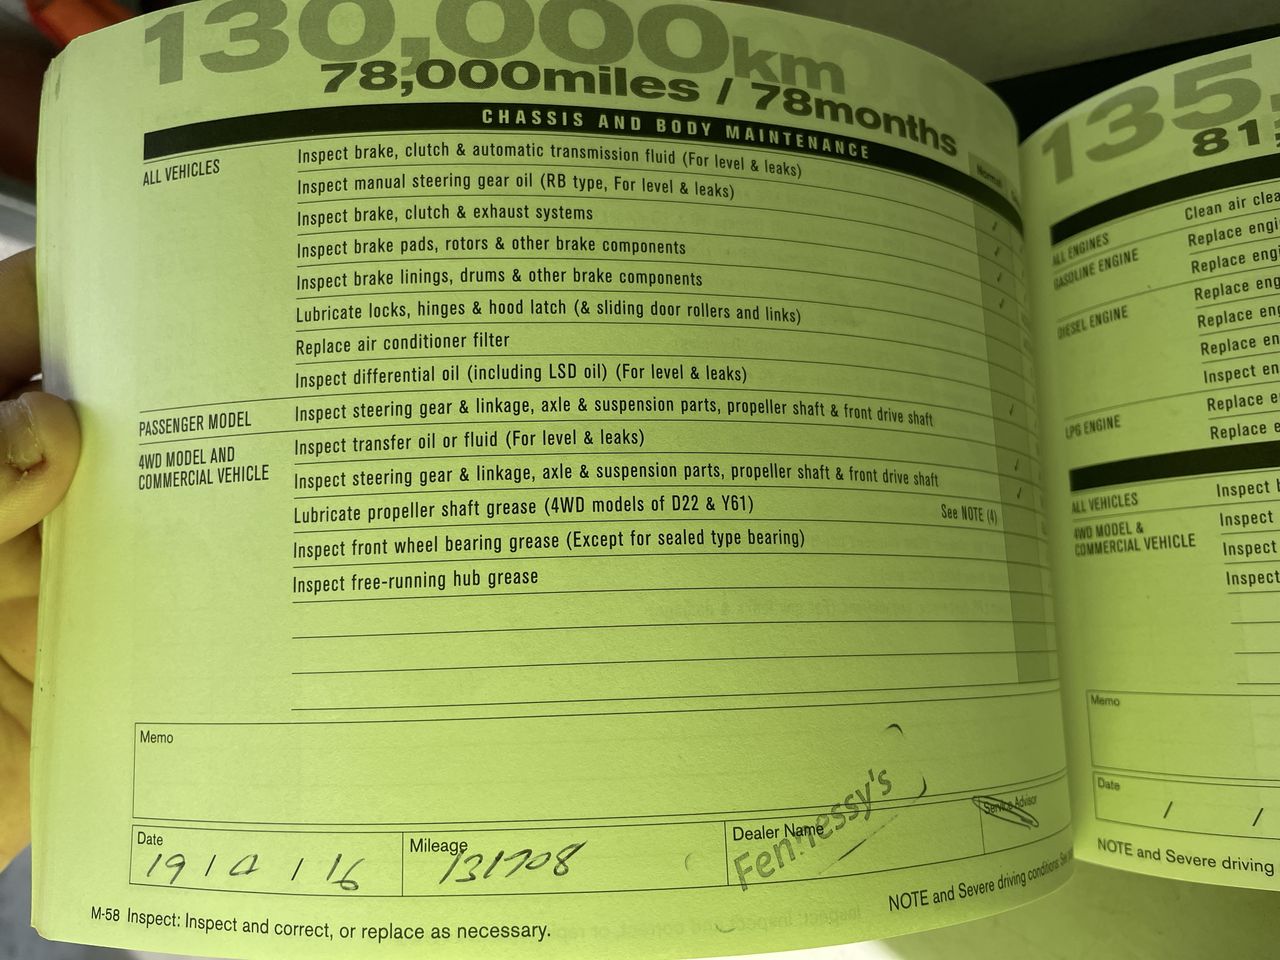 130,000km
78,000miles / 78months
CHASSIS AND BODY MAINTENANCE
Normal
ALL VEHICLES
Inspect brake, clutch & automatic transmission fluid (For level & leaks)
Inspect manual steering gear oil (RB type, For level & leaks)
Inspect brake, clutch & exhaust systems
Inspect brake pads, rotors & other brake components
Inspect brake linings, drums & other brake components
Lubricate locks, hinges & hood latch (& sliding door rollers and links)
Replace air conditioner filter
Inspect differential oil (including LSD oil) (For level & leaks)
PASSENGER MODEL
Inspect steering gear & linkage, axle & suspension parts, propeller shaft & front drive shaft
4WD MODEL AND
COMMERCIAL VEHICLE
Inspect transfer oil or fluid (For level & leaks)
Inspect steering gear & linkage, axle & suspension parts, propeller shaft & front drive shaft
Lubricate propeller shaft grease (4WD models of D22 & Y61) See NOTE (4)
Inspect front wheel bearing grease (Except for sealed type bearing)
Inspect free-running hub grease
Memo
Date
Mileage
131708
Dealer Name
Fennessy's
Service Advisor
M-58 Inspect: Inspect and correct, or replace as necessary.
NOTE and Severe driving conditions
135,
81
ALL ENGINES
Clean air clea
GASOLINE ENGINE
Replace engi
Replace engi
DIESEL ENGINE
Replace eng
Replace eng
Replace en
Inspect en
LPG ENGINE
Replace e
Replace e
ALL VEHICLES
Inspect b
4WD MODEL &
COMMERCIAL VEHICLE
Inspect
Inspect
Inspect
Memo
Date
/ /
NOTE and Severe driving